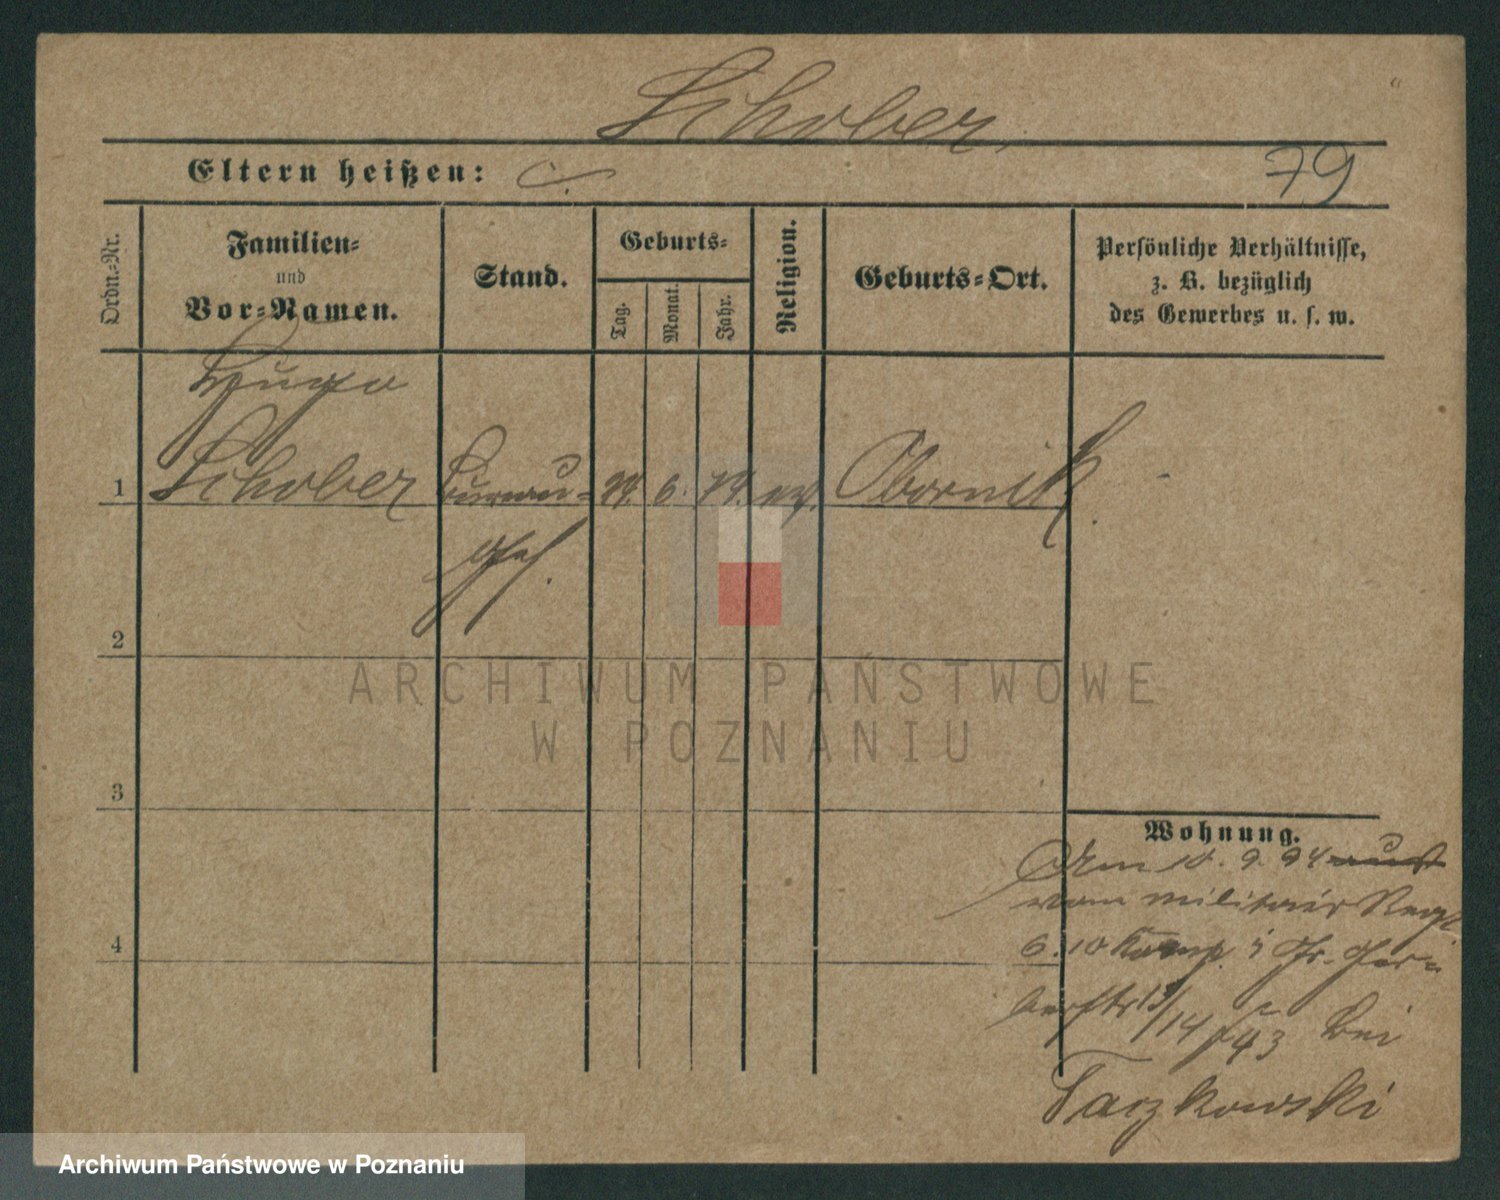 Schober.
Eltern heißen: ./.
79
Ordn.-Nr.
Familien-
und
Vor-Namen.
Stand.
Geburts-
Tag.
Monat.
Jahr.
Religion.
Geburts-Ort.
Persönliche Verhältnisse,
z. B. bezüglich
des Gewerbes u. s. w.
Hugo
1 Schober Bureau- 6. ev. Obornik
geh.
2
3
4
Wohnung.
Am 10. 9. 94
vom militair Regt
6. 10 Komp. Gr. Ger-
berstr 13/14 bei
Taczkowski
ARCHIWUM PAŃSTWOWE
W POZNANIU
Archiwum Państwowe w Poznaniu